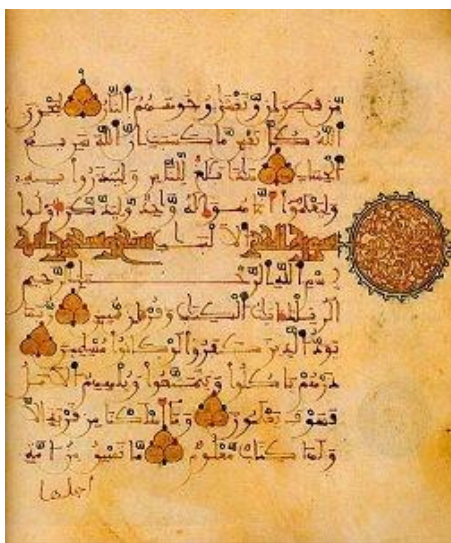 مِّن قَطِرَانٍ وَتَغْشَىٰ وُجُوهَهُمُ النَّارُ لِيَجْزِيَ
اللَّهُ كُلَّ نَفْسٍ مَّا كَسَبَتْ إِنَّ اللَّهَ سَرِيعُ
الْحِسَابِ هَٰذَا بَلَٰغٌ لِّلنَّاسِ وَلِيُنذَرُوا بِهِ
وَلِيَعْلَمُوا أَنَّمَا هُوَ إِلَٰهٌ وَٰحِدٌ وَلِيَذَّكَّرَ أُولُوا
سورة الحجر الْأَلْبَٰبِ
بِسْمِ اللَّهِ الرَّحْمَٰنِ الرَّحِيمِ
الر تِلْكَ ءَايَٰتُ الْكِتَٰبِ وَقُرْءَانٍ مُّبِينٍ رُّبَمَا
يَوَدُّ الَّذِينَ كَفَرُوا لَوْ كَانُوا مُسْلِمِينَ
ذَرْهُمْ يَاكُلُوا وَيَتَمَتَّعُوا وَيُلْهِهِمُ الْأَمَلُ
فَسَوْفَ يَعْلَمُونَ وَمَا أَهْلَكْنَا مِن قَرْيَةٍ إِلَّا
وَلَهَا كِتَابٌ مَّعْلُومٌ مَّا تَسْبِقُ مِنْ أُمَّةٍ
أجلها